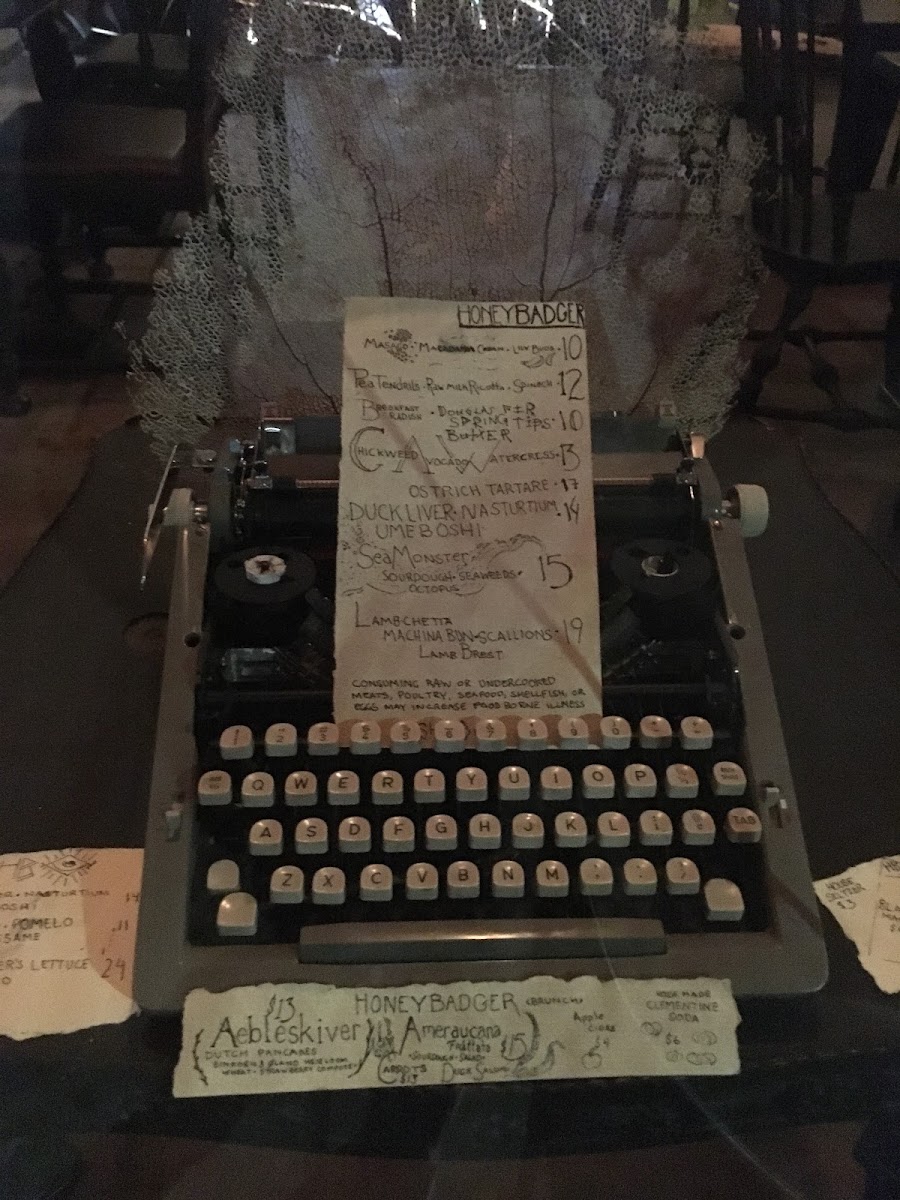 HONEYBADGER
MASAGO · MACADAMIA CREAM · LILY BUDS · 10
PEA TENDRILS · RAW MILK RICOTTA · SPINACH · 12
BREAKFAST RADISH · DOUGLAS FIR
SPRING TIPS · 10
BUTTER
CHICKWEED AVOCADO WATERCRESS · 13
OSTRICH TARTARE · 17
DUCK LIVER · NASTURTIUM · 14
UMEBOSHI
SEA MONSTER
SOURDOUGH · SEAWEEDS · 15
OCTOPUS
LAMB-CHETTA
MACHINA BUN · SCALLIONS · 19
LAMB BREST
CONSUMING RAW OR UNDERCOOKED
MEATS, POULTRY, SEAFOOD, SHELLFISH, OR
EGG MAY INCREASE FOOD BORNE ILLNESS
Q W E R T Y U I O P
A S D F G H J K L TAB
Z X C V B N M
NASTURTIUM 14
OSHI
POMELO 11
SAME
ER'S LETTUCE 24
O
HOUSE
SELTZER
$3
HONEYBADGER (BRUNCH)
$13
AEBLESKIVER
DUTCH PANCAKES
AMERAUCANA
FRITTATA $15
CARROTS
$13
DUCK SALAMI
APPLE
CIDER
$4
HOUSE MADE
CLEMENTINE
SODA
$6